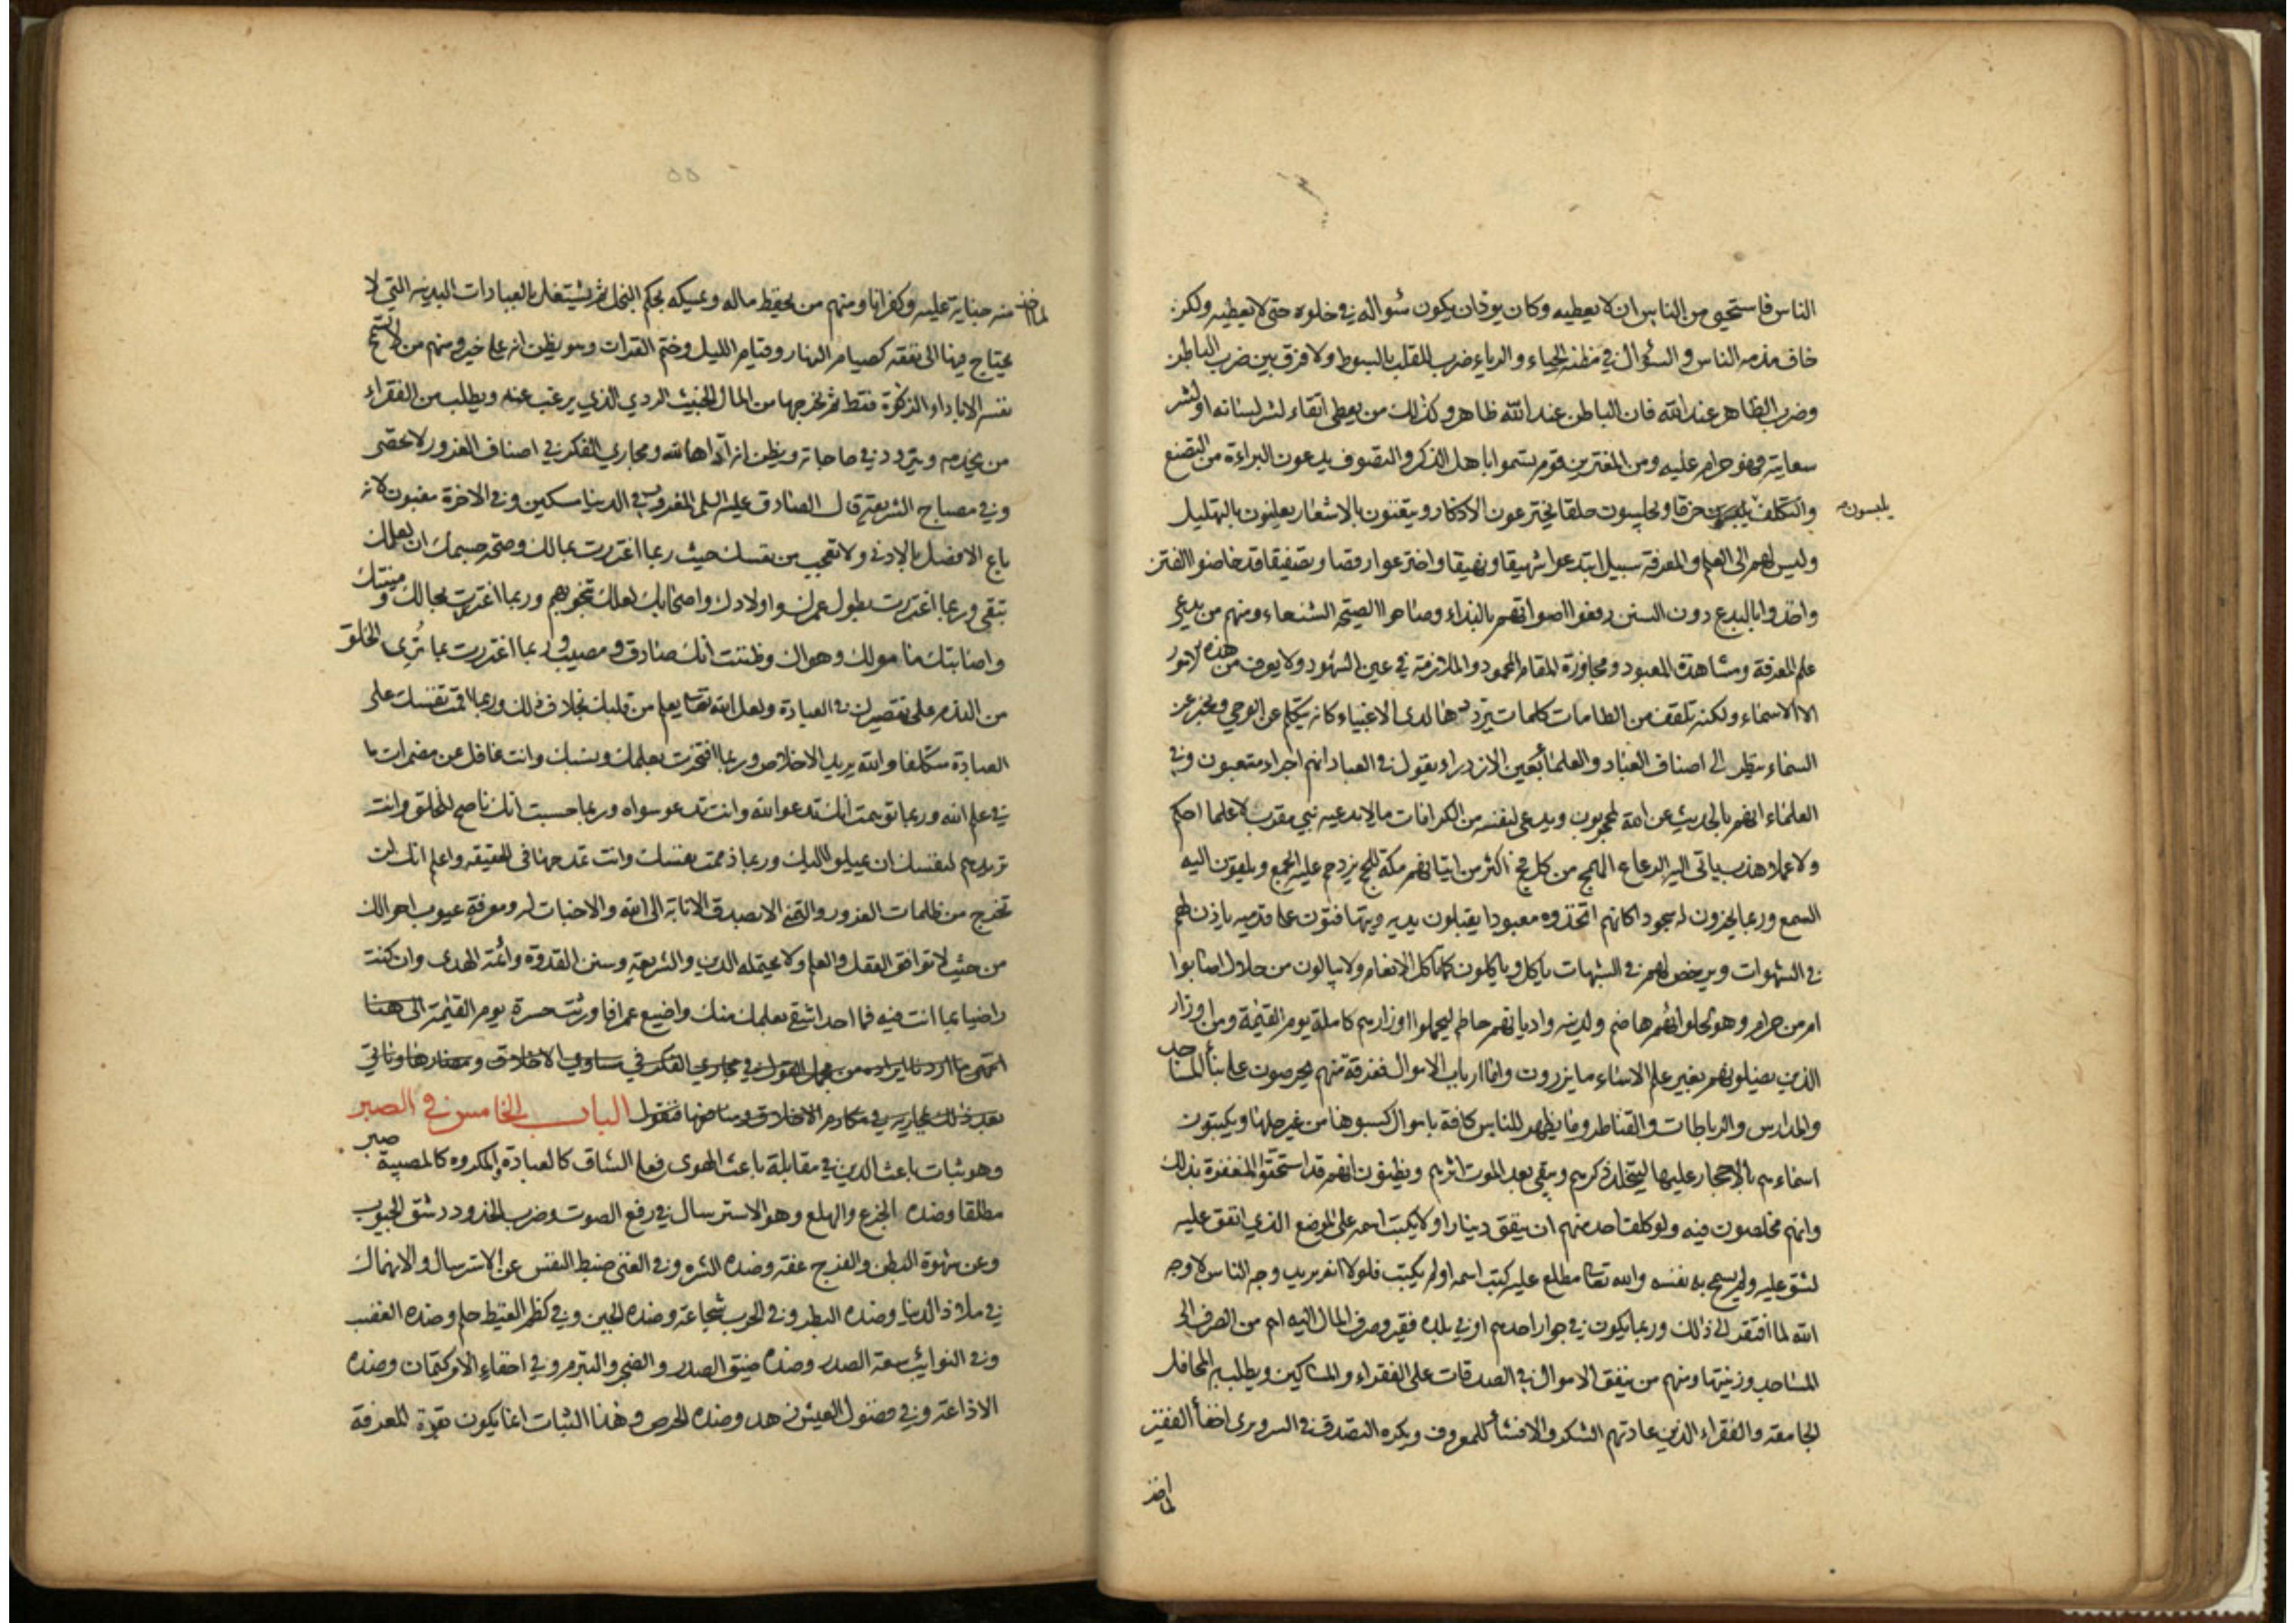 الناس فاستحيى من الناس ان لا يعطيه وكان يود ان يكون سؤاله في خلوة حتى لا يعطيه ولكن
خاف مذمه الناس والسؤال في مظنه الحياء والرياء ضرب للقلب بالسوط ولا فرق بين ضرب الباطن
وضرب الظاهر عند الله فان الباطن عند الله ظاهر وكذلك من يعطى اتقاء لشر لسانه او لشر
سعايته فهو حرام عليه ومن المغترين قوم يسمّوا باهل الذكر والتصوف يدعون البراءة من التصنع
والتكلف يلبسون خرقا ويجلسون حلقا يخترعون الاذكار ويتغنون بالاشعار يعلنون بالتهليل
يلبسون
وليس لهم الى العلم والمعرفة سبيل ابتدعوا شهيقا ونهيقا واخترعوا رقصا وتصفيقا قد خاضوا الفتن
واخذوا بالبدع دون السنن رفعوا اصواتهم بالنداء وصاحوا الصيحة الشنعاء ومنهم من يدعي
علم المعرفة ومشاهدة المعبود ومجاورة المقام المحمود والملازمة في عين الشهود ولا يعرف من هذه الامور
الا الاسماء ولكنه تلقف من الطامات كلمات يرددها لدى الاغبياء كانه يتكلم عن الوحي ويخبر عن
السماء ينظر الى اصناف العباد والعلماء بعين الازدراء يقول في العباد انهم اجراء متعبون وفي
العلماء انهم بالحديث عن الله لمحجوبون ويدعى لنفسه من الكرامات ما لا يدعيه نبي مقرب لا علما احكم
ولا عملا هذب ياتى اليه الرعاع الهمج من كل فج اكثر من اتيانهم مكة للحج يزدحم عليه الجمع ويلقون اليه
السمع وربما يخرون له سجودا كانهم اتخذوه معبودا يقبلون يديه ويتهافتون على قدميه ياذن لهم
في الشهوات ويرخص لهم في الشبهات ياكل وياكلون كما تاكل الانعام ولا يبالون من حلال اصابوا
ام من حرام وهو لحلوائهم هاضم ولدينه واديانهم حاطم ليحملوا اوزارهم كاملة يوم القيمة ومن اوزار
الذين يضلونهم بغير علم الا ساء ما يزرون واما ارباب الاموال ففرقة منهم يحرصون على بناء المساجد
والمدارس والرباطات والقناطر وما يظهر للناس كافة باموال كسبوها من غير حلها ويكتبون
اسماءهم بالاحجار عليها ليتخلد ذكرهم ويبقى بعد الموت اثرهم ويظنون انهم قد استحقوا المغفرة بذلك
وانهم مخلصون فيه ولو كلف احد منهم ان ينفق دينارا ولا يكتب اسمه على الموضع الذي انفق عليه
لشق عليه ولم يسمح به نفسه والله تعالى مطلع عليه كتب اسمه او لم يكتب فلولا انه يريد وجه الناس لا وجه
الله لما افتقر الى ذلك وربما يكون في جوار احدهم او في بلده فقير وصرف المال اليه اهم من الصرف الى
المساجد وزينتها ومنهم من ينفق الاموال في الصدقات على الفقراء والمساكين ويطلب به المحافل
الجامعة والفقراء الذين عادتهم الشكر والافشاء للمعروف ويكره التصدق في السر ويرى اخفاء الفقير
لما اخذ
لما اخذ منه جناية عليه وكفرانا ومنهم من يحفظ ماله ويمسكه بحكم البخل ثم يشتغل بالعبادات البدنيه التي لا
يحتاج فيها الى نفقه كصيام النهار وقيام الليل وختم القران وهو يظن انه على خير ومنهم من لا تسمح
نفسه الا باداء الزكوة فقط ثم يخرجها من المال الخبيث الردي الذي يرغب عنه ويطلب من الفقراء
من يخدمه ويتردد في حاجاته ويظن انه اداها لله ومجاري الفكر في اصناف الغرور لا تحصى
وفي مصباح الشريعة قال الصادق عليه السلم المغرور في الدنيا مسكين وفي الاخرة مغبون لانه
باع الافضل بالادنى ولا تعجب من نفسك حيث ربما اغتررت بمالك وصحة جسمك ان لعلك
تبقى وربما اغتررت بطول عمرك واولادك واصحابك لعلك تنجو بهم وربما اغتررت بجمالك ومنيتك
واصابتك مامولك وهواك وظننت انك صادق ومصيب وربما اغتررت بما تُرِى الخلق
من الندم على تقصيرك في العبادة ولعل الله تعالى يعلم من قلبك بخلاف ذلك وربما اقمت نفسك على
العبادة متكلفا والله يريد الاخلاص وربما افتخرت بعلمك ونسبك وانت غافل عن مضمرات ما
في علم الله وربما توهمت انك تدعو الله وانت تدعو سواه وربما حسبت انك ناصح للخلق وانت
تريدهم لنفسك ان يميلوا اليك وربما ذممت نفسك وانت تمدحها في الحقيقه واعلم انك لن
تخرج من ظلمات الغرور والتمني الا بصدق الانابة الى الله والاخبات له ومعرفة عيوب احوالك
من حيث لا توافق العقل والعلم ولا يحتمله الدين والشريعة وسنن القدوة وائمة الهدى وان كنت
راضيا بما انت فيه فما احد اشقى بعلمك منك واضيع عمرا فاورثت حسرة يوم القيمة الى هنا
انتهى ما اردنا ايراده من مجمل القول في مجاري الفكر في مساوي الاخلاق ومضارها وناتي
بعد ذلك بمجاريه في مكارم الاخلاق ومنافعها فنقول الباب الخامس في الصبر
وهو ثبات باعث الدين في مقابلة باعث الهوى فعلى الشاق كالعبادة والمكروه كالمصيبة صبر
مطلقا وضده الجزع والهلع وهو الاسترسال في رفع الصوت وضرب الخدود وشق الجيوب
وعن شهوة البطن والفرج عفة وضده الشره وفي الغنى ضبط النفس عن الاسترسال والانهماك
في ملاذ الدنيا وضده البطر وفي الحرب شجاعة وضده الجبن وفي كظم الغيظ حلم وضده الغضب
وفي النوائب سعة الصدر وضده ضيق الصدر والضجر والتبرم وفي اخفاء الامر كتمان وضده
الاذاعة وفي فضول العيش زهد وضده الحرص وهذا الثبات انما يكون بقوة المعرفة